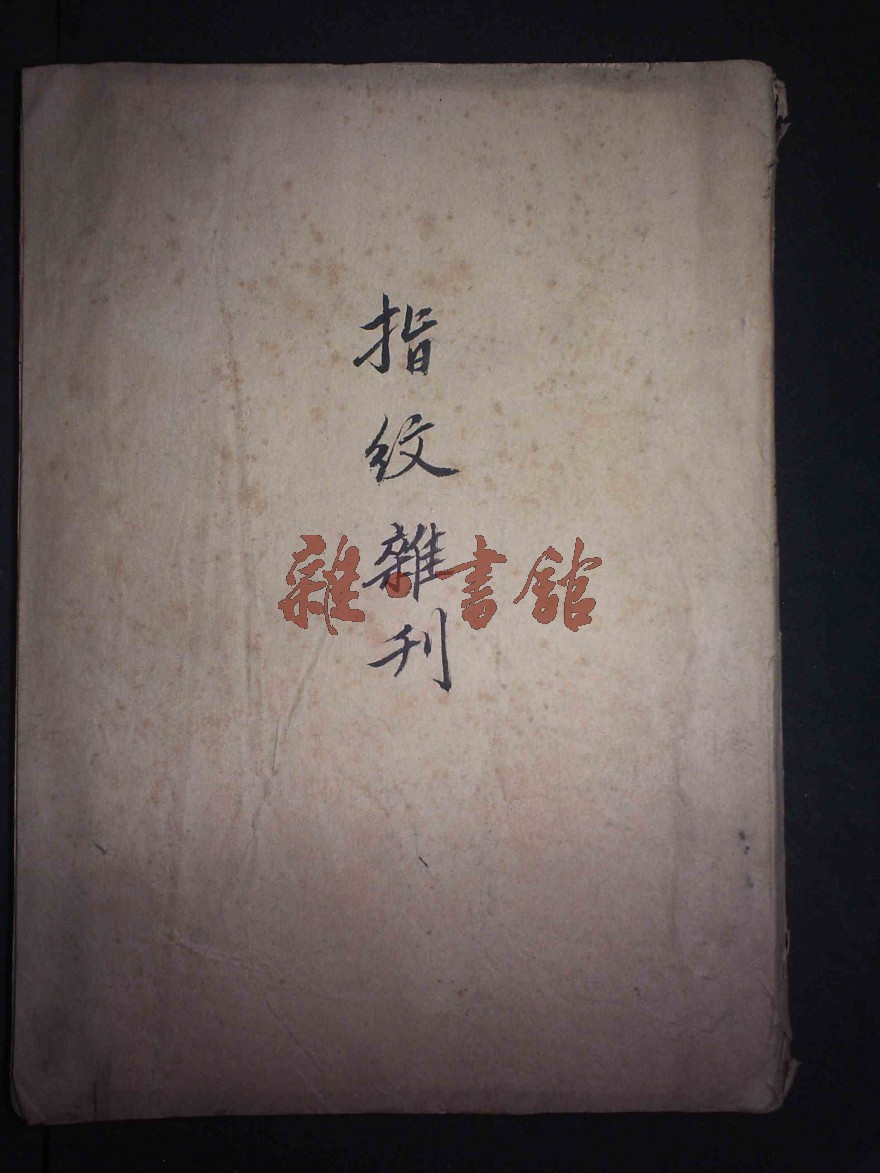 指紋雜刊
雜·書館